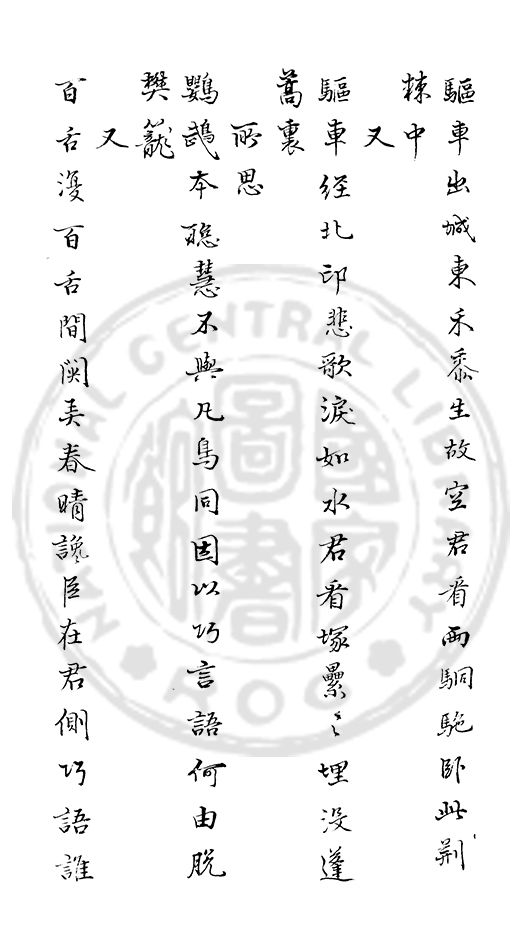 驅車出城東禾黍生故空君看兩駧駞卧此荆
棘中
又
驅車經北邙悲歌淚如水君看塚纍〻埋没蓬
蒿裏
所思
鸚鵡本聰慧不與凡鳥同因以巧言語何由脱
樊籠
又
百舌復百舌間関弄春晴讒臣在君側巧語誰
NATIONAL CENTRAL LIBRARY
ROC
國家圖書館